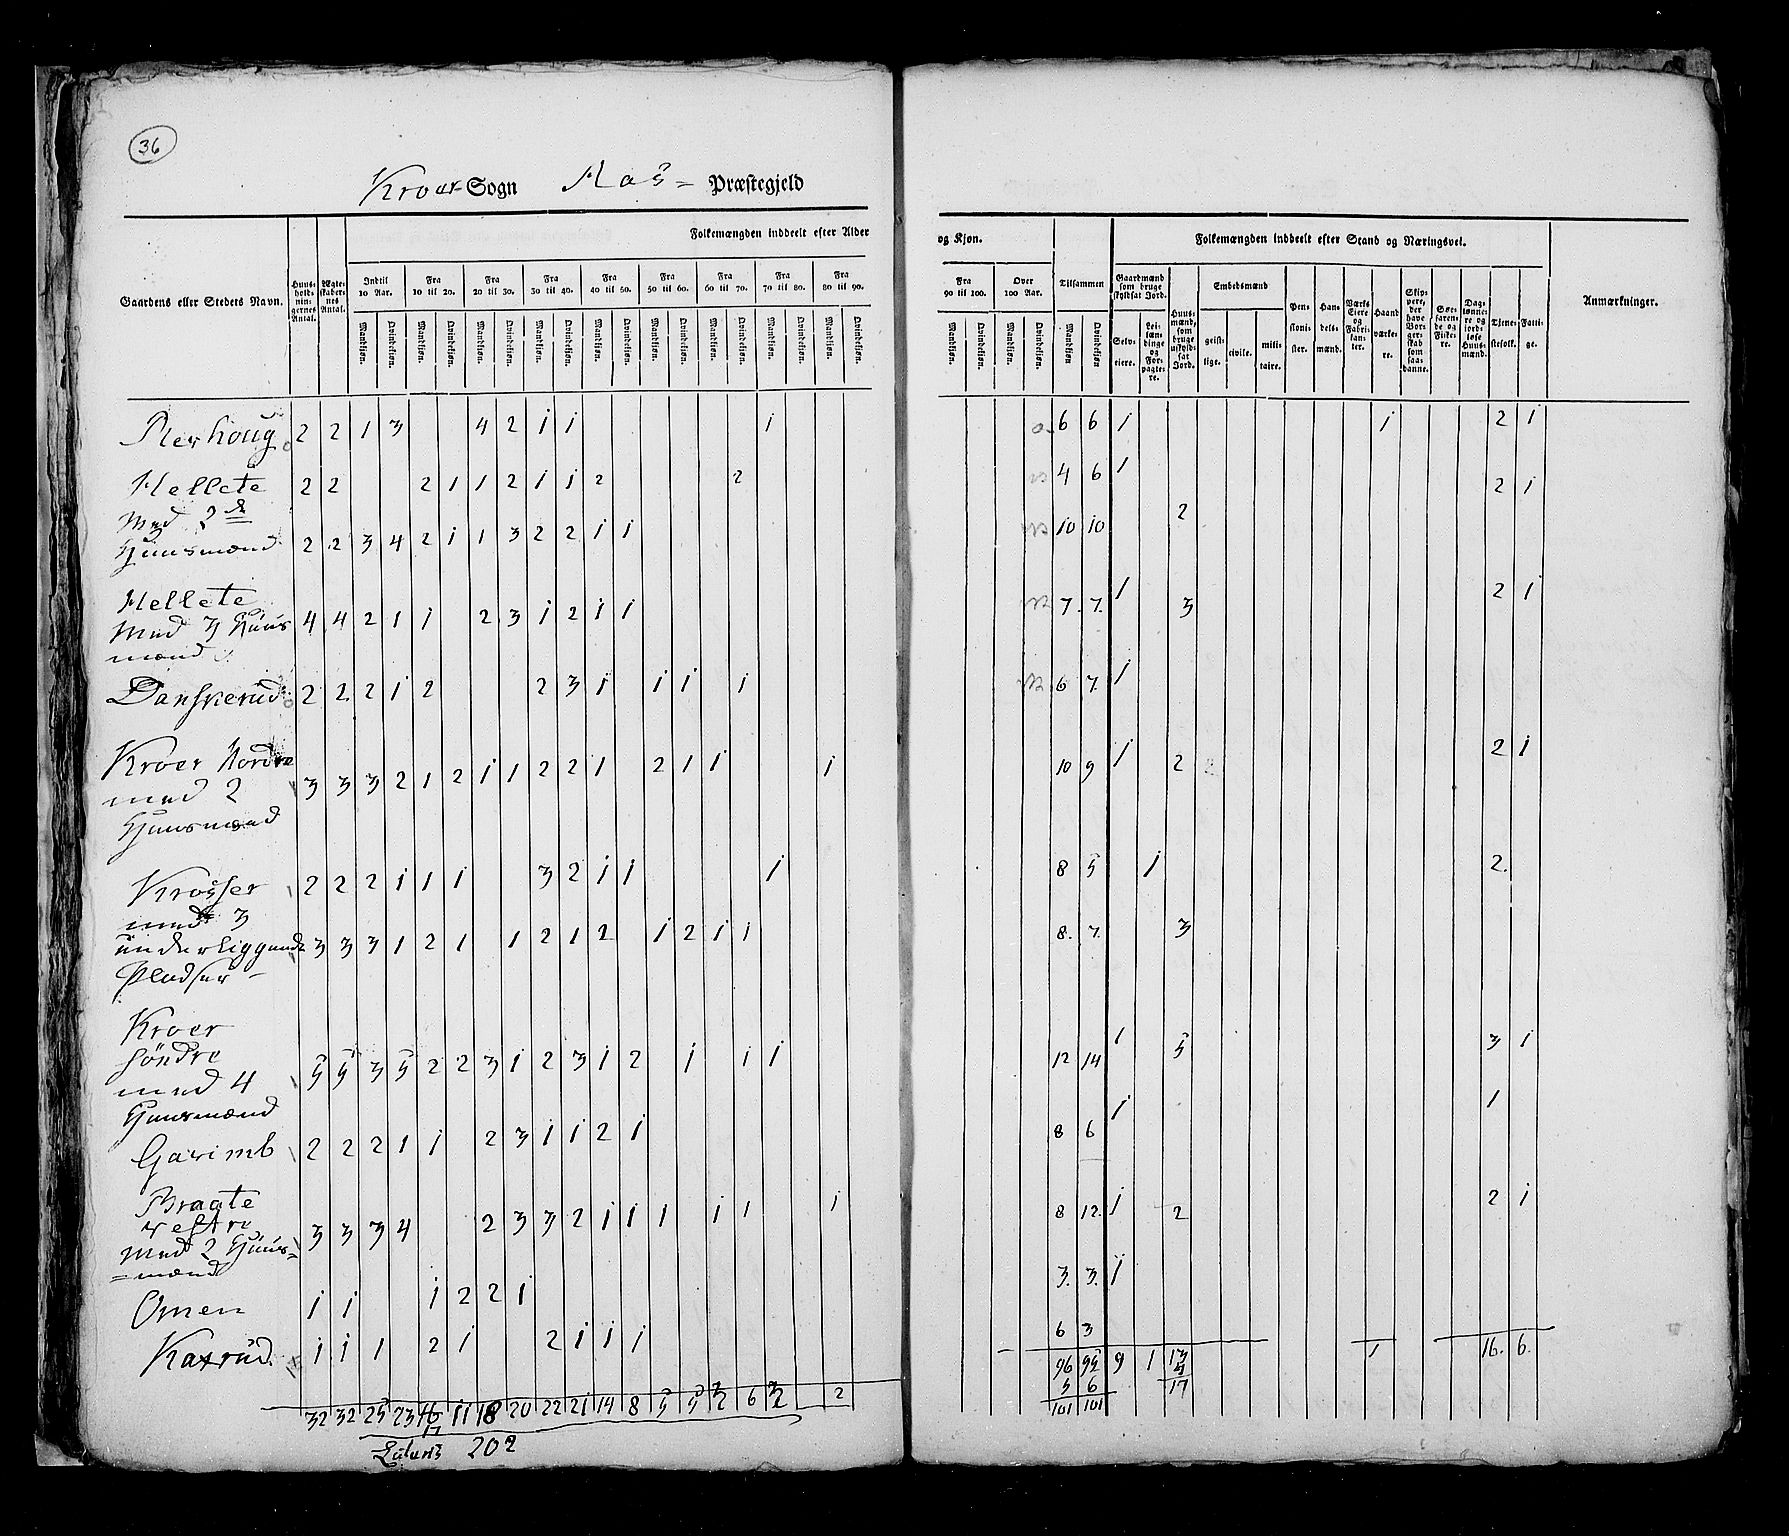 36
Kroer Sogn Aas Præstegjeld
Folkemængden inddeelt efter Alder og Kjøn.
Folkemængden inddeelt efter Stand og Næringsvei.
Gaardens eller Stedets Navn.
Huusholdningernes Antal.
Ægteskabernes Antal.
Indtil 10 Aar.
Fra 10 til 20.
Fra 20 til 30.
Fra 30 til 40.
Fra 40 til 50.
Fra 50 til 60.
Fra 60 til 70.
Fra 70 til 80.
Fra 80 til 90.
Fra 90 til 100.
Over 100 Aar.
Tilsammen
Mandkjøn. Qvindekjøn.
Gaardmænd som bruge skyldsat Jord.
Selveiere.
Leilændinge og Forpagtere.
Huusmænd, som bruge uskyldsat Jord.
Embedsmænd
geistlige. civile. militaire.
Pensionister.
Handelsmænd.
Værks Eiere og Fabrikanter.
Haandværkere.
Skippere, der have Borgerskab som saadanne.
Søefarende og Fiskere.
Daglønnere og jordløse Huusmænd.
Tjenestefolk.
Fattige.
Anmærkninger.
2 2 1 3 4 2 1 1 1 6 6 1 1 2 1
Hellete 2 2 2 1 1 2 1 1 2 2 4 6 1 2 1
Med 2de
Huusmænd 2 2 3 4 2 1 1 3 2 2 1 1 10 10 2
Hellete
Med 3 Huus 4 4 2 1 1 2 3 1 2 1 1 7. 7. 1 3 2 1
mænd
Danskerud 2 2 2 1 2 2 3 1 1 1 1 6 7. 1
Kroer Nordre
med 2 3 3 3 2 1 2 1 1 2 2 1 2 1 1 1 10 9 1 2 2 1
Huusmænd
Krosser 2 2 2 1 1 1 3 2 1 1 1 8 5 1 2.
med 3
underliggende 3 3 3 1 2 1 1 2 1 2 1 2 1 1 8. 7. 3
Pladser
Kroer
söndre 5 5 3 5 2 2 3 1 2 3 1 2 1 1 1 12 14 1 5 3 1
med 4
Huusmænd
Garimb 2 2 2 1 1 2 3 1 1 2 1 8 6 1 1
Braate
vestre 3 3 3 4 2 3 3 2 1 1 1 1 1 1 8 12. 1 2 2 1
Med 2 Huus=
=mænd
Omen 1 1 1 2 2 1 3. 3. 1
Kaxrud. 1 1 1 2 1 2 1 1 1 6 3
96 95 9 1 13 1 16. 6.
5 6 4
101 101 17
32 32 25 23 16 11 18 20 22 21 14 8 5 5 2 6 2 2
17
Lateris 202